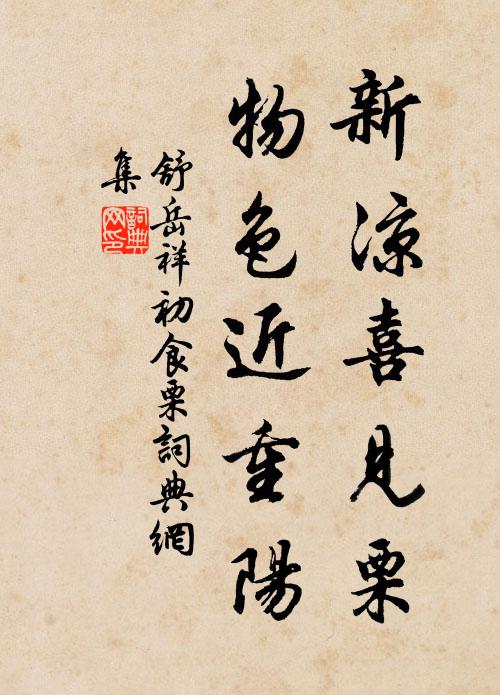 新涼喜見栗
物色近重陽
舒岳祥初食栗詞典網
集
詞典網印